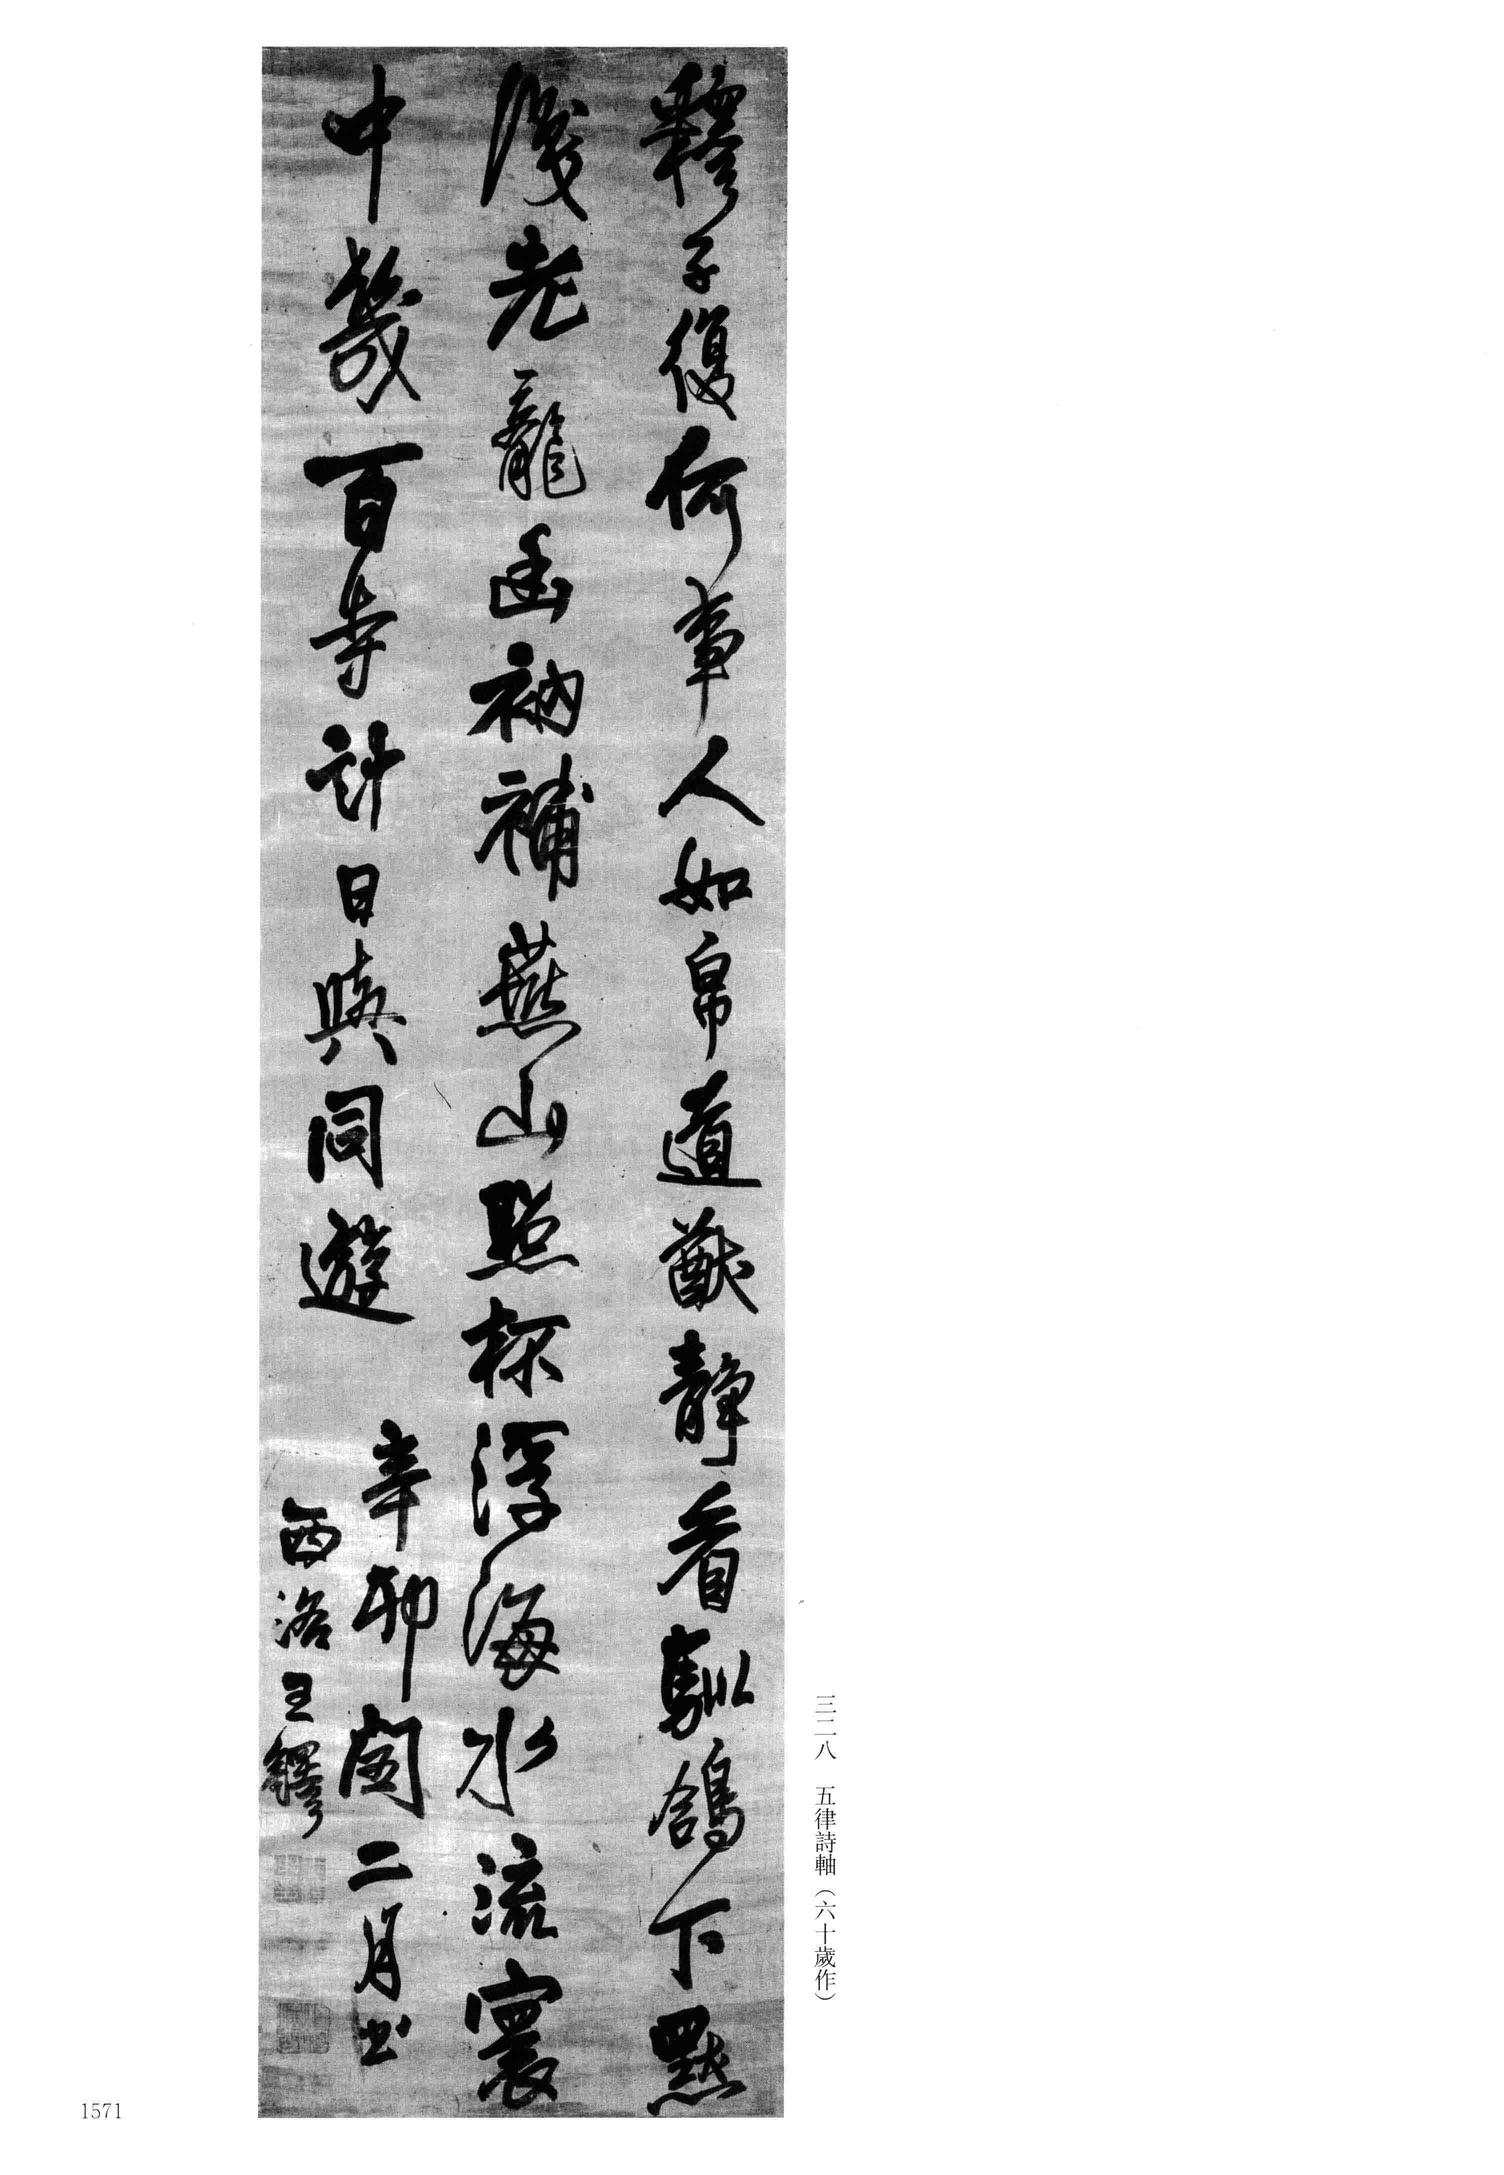 釋子復何事人如帛道猷靜看馴鴿下默
後老龍幽衲補燕山點杯浮海水流寰
中幾百寺計日與同遊 辛卯閏二月書
西洛王鐸
三二八 五律詩軸（六十歲作）
1571